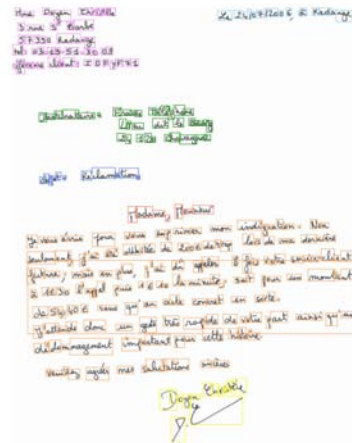 Mme Doyen Christelle
3 rue St Barbe
57330 Kadange
tel: 03.19.51.30.09
Le 24/07/2006, à Kadange
Objet: Réclamation
Madame, Monsieur
Je vous écris pour vous exprimer mon indignation. Non
seulement, j'ai été débitée de 200€ de trop lors de ma dernière
facture, mais en plus, j'ai dû appeler 8 fois votre service client
à 1€30 l'appel puis 1€ la minute, soit pour un montant
de 54,40€ sans qu'on aide
J'attends donc un geste très rapide de votre part ainsi qu'un
dédommagement important pour cette histoire.
Veuillez agréer mes salutations sincères
Doyen Christelle